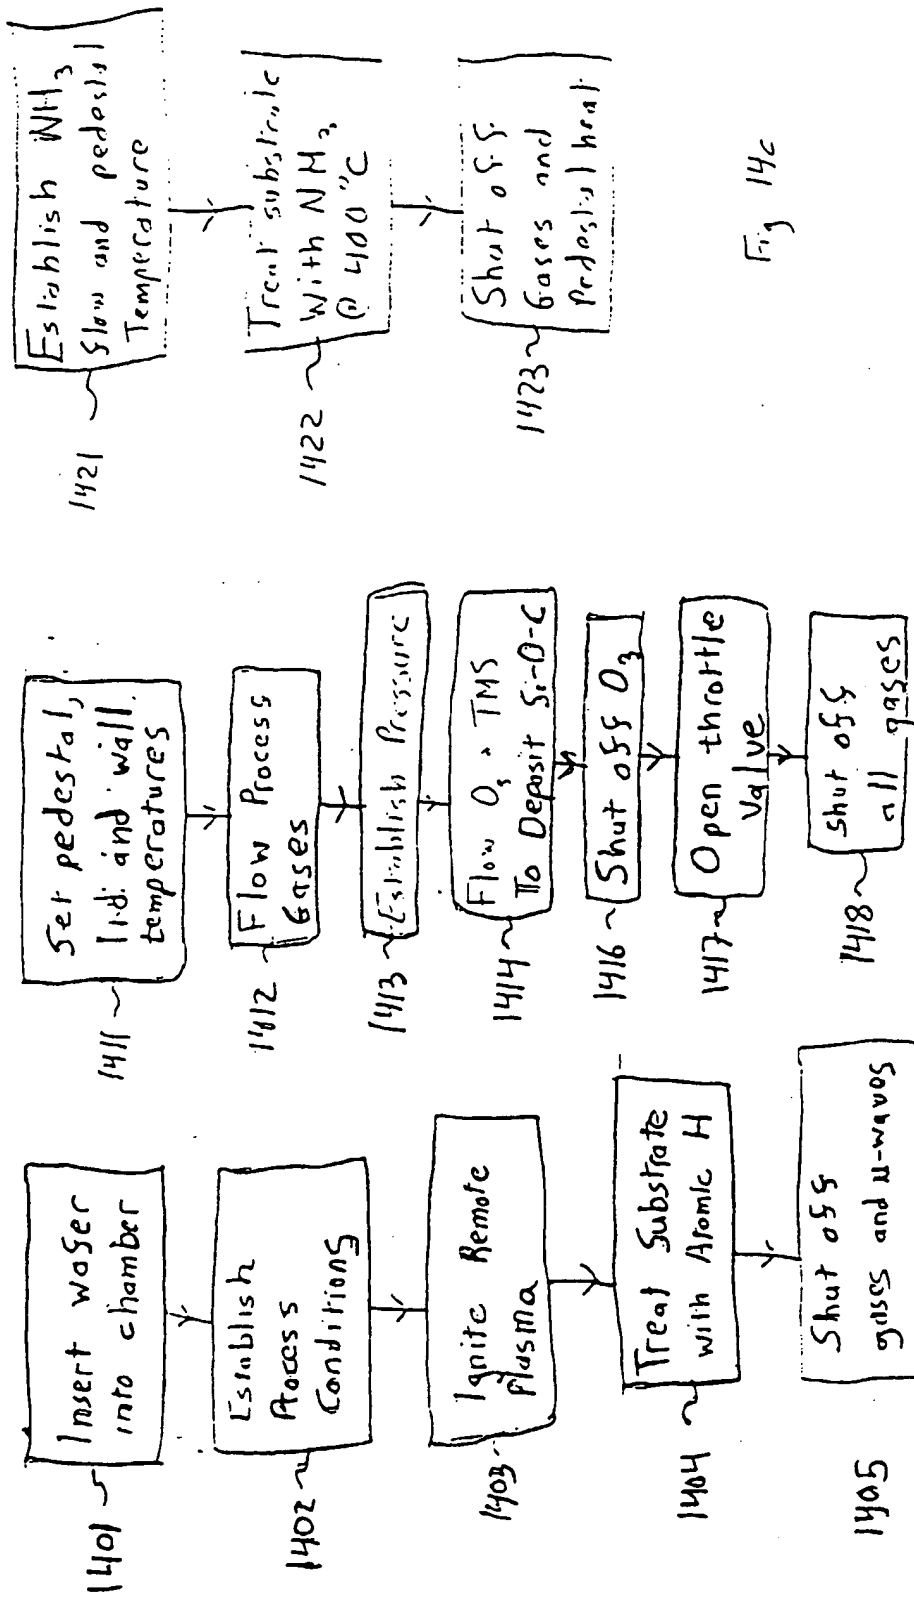 1401
Insert wafer
into chamber
1402
Establish
Process
Conditions
1403
Ignite Remote
Plasma
1404
Treat Substrate
with Atomic H
1405
Shut off
gases and µ-waves
1411
Set pedestal,
lid and wall
temperatures
1412
Flow Process
Gases
1413
Establish Pressure
1414
Flow O₃ + TMS
To Deposit Si-O-C
1416
Shut off O₃
1417
Open throttle
Valve
1418
Shut off
all gases
1421
Establish NH₃
flow and pedestal
Temperature
1422
Treat substrate
With NH₃
@ 400°C
1423
Shut off
Gases and
Pedestal heat
Fig 14c